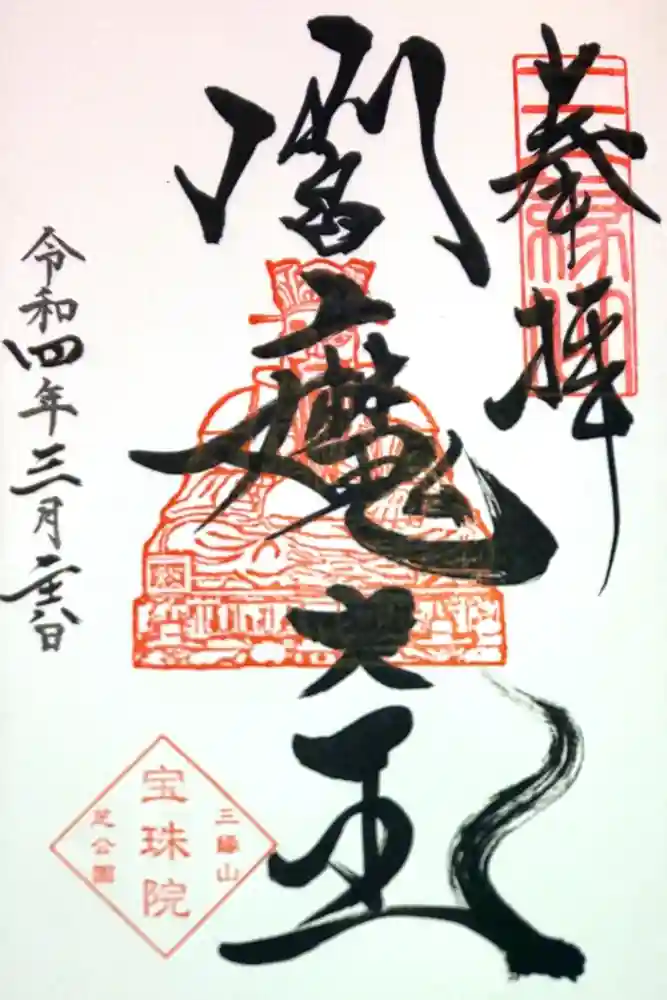 奉拝
閻魔大王
令和四年三月二十八日
三縁山
宝珠院
芝公園